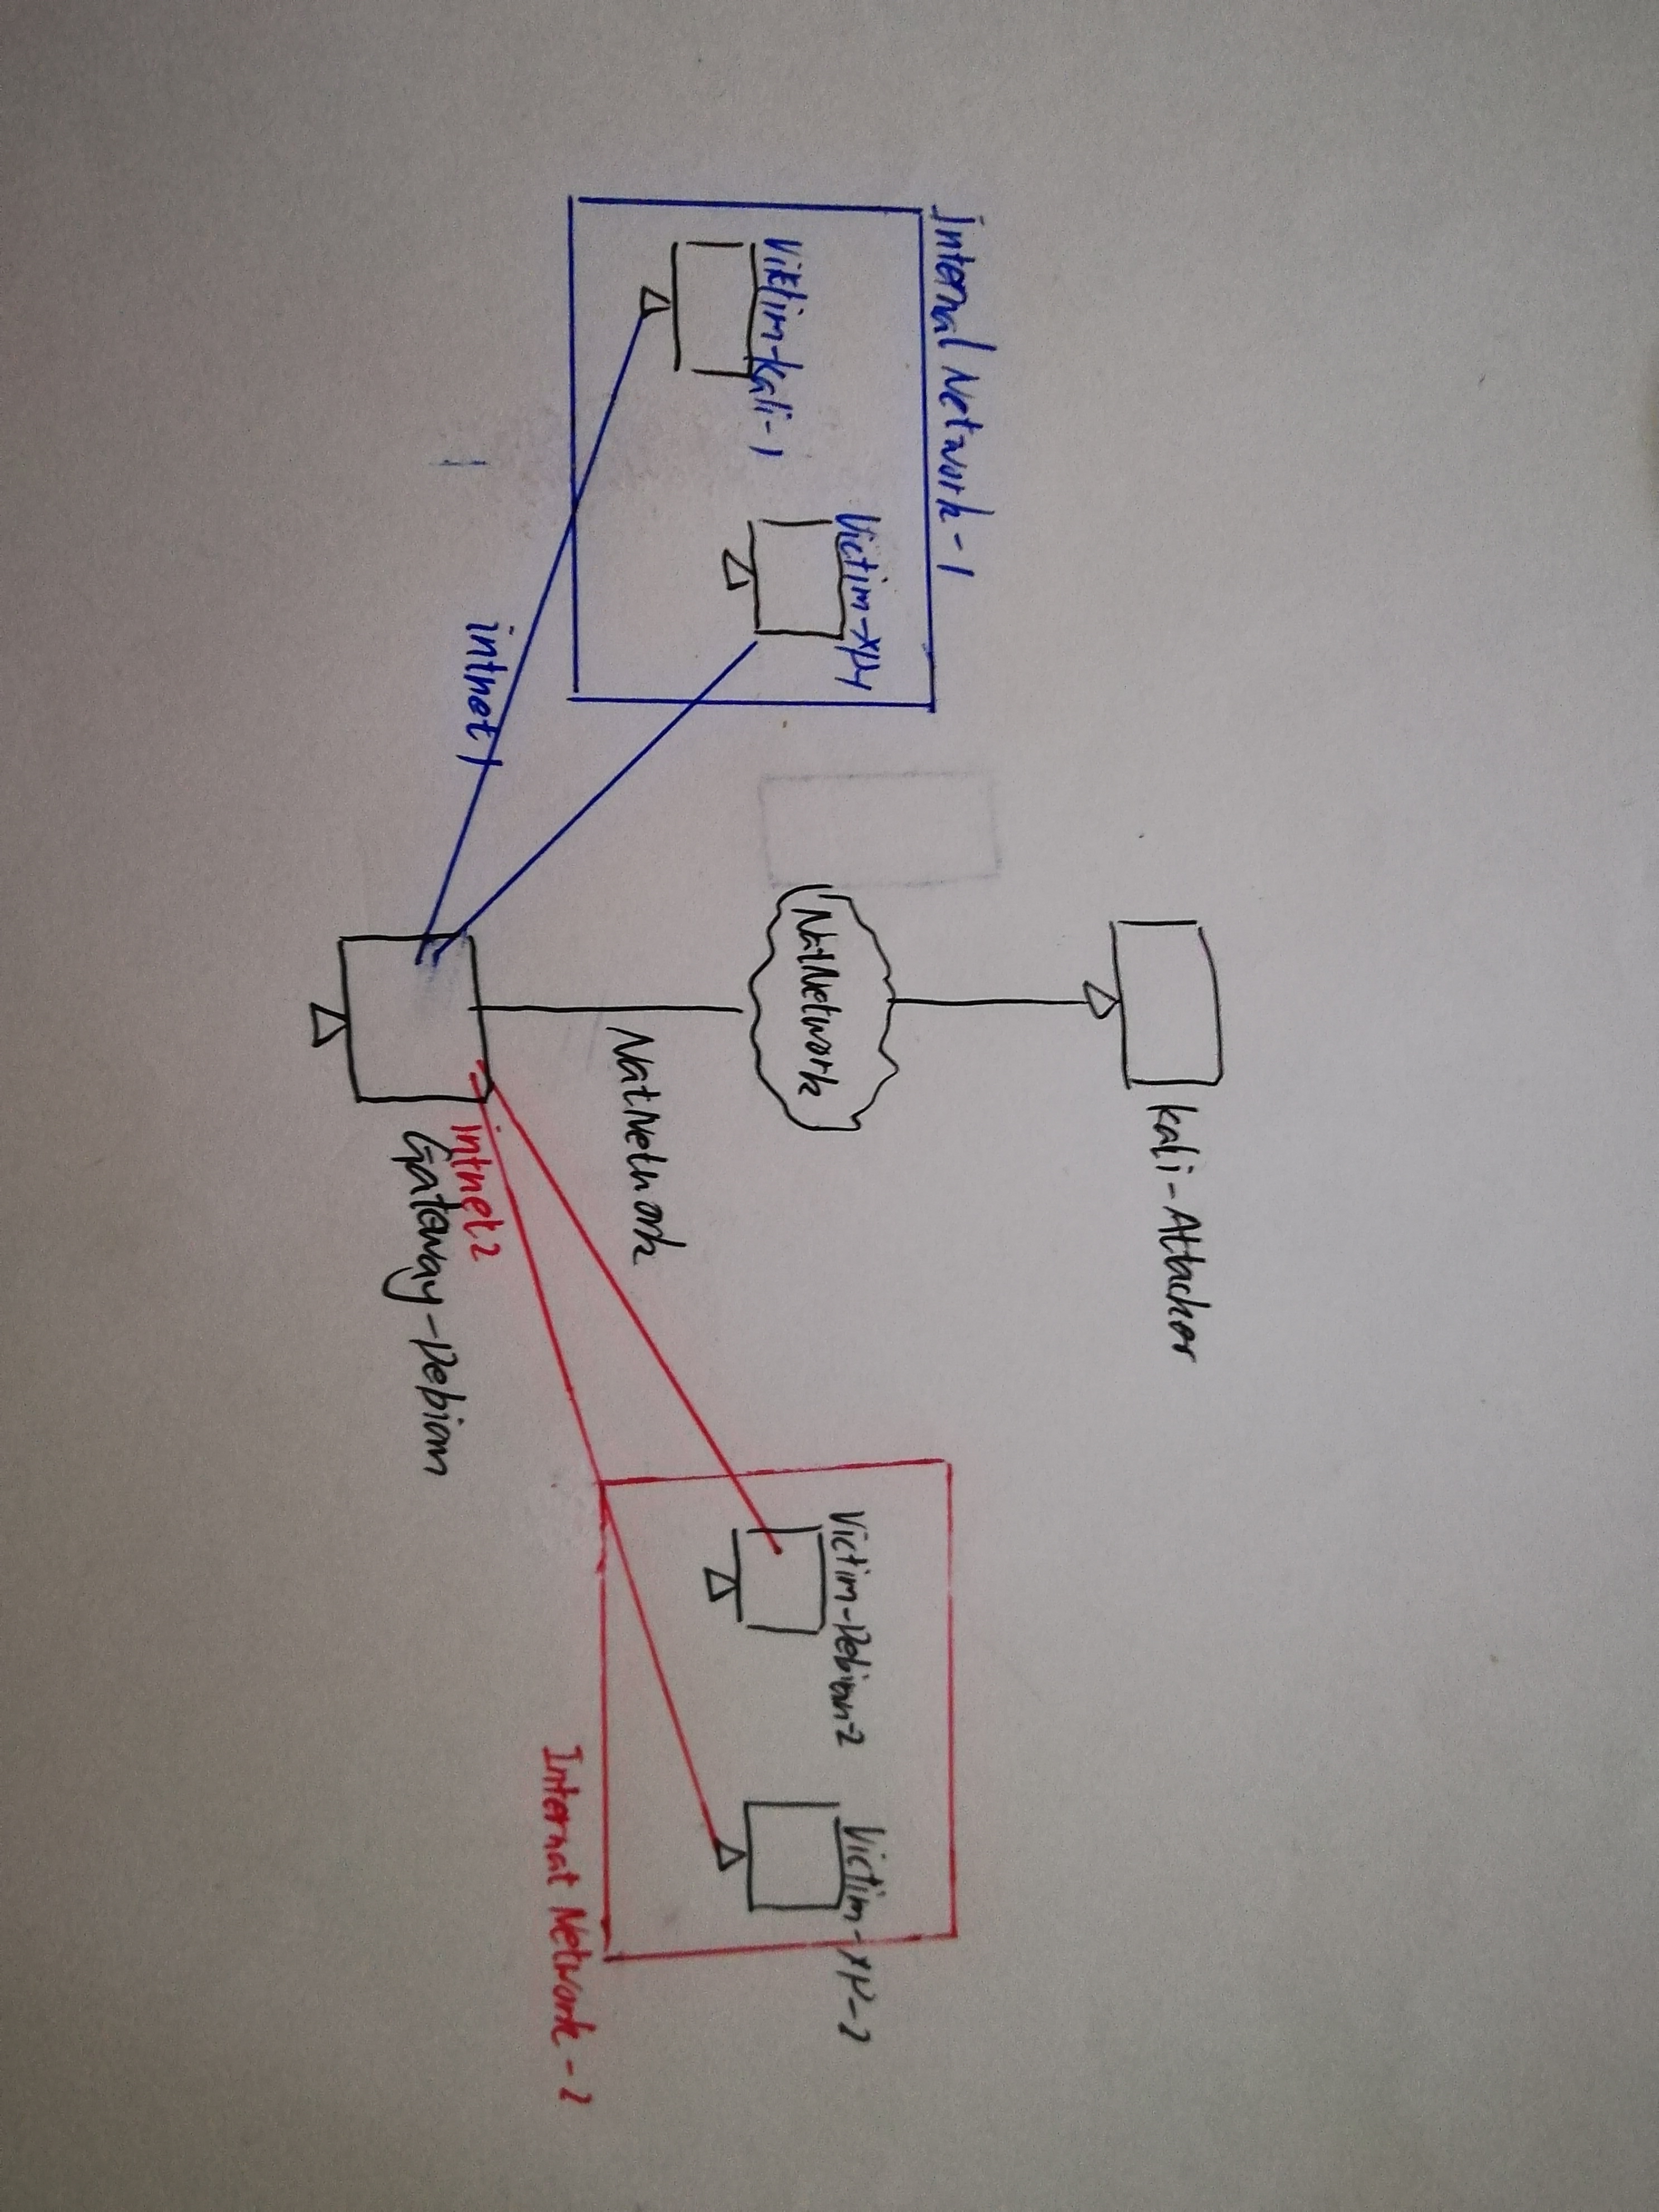 Kali-Attacker
Internal Network-1
Victim-XP-1
Viktim-Kali-1
NatNetwork
Victim-Debian-2
Victim-XP-2
NatNetwork
Internat Network-2
intnet1
intnet2
Gateway-Debian